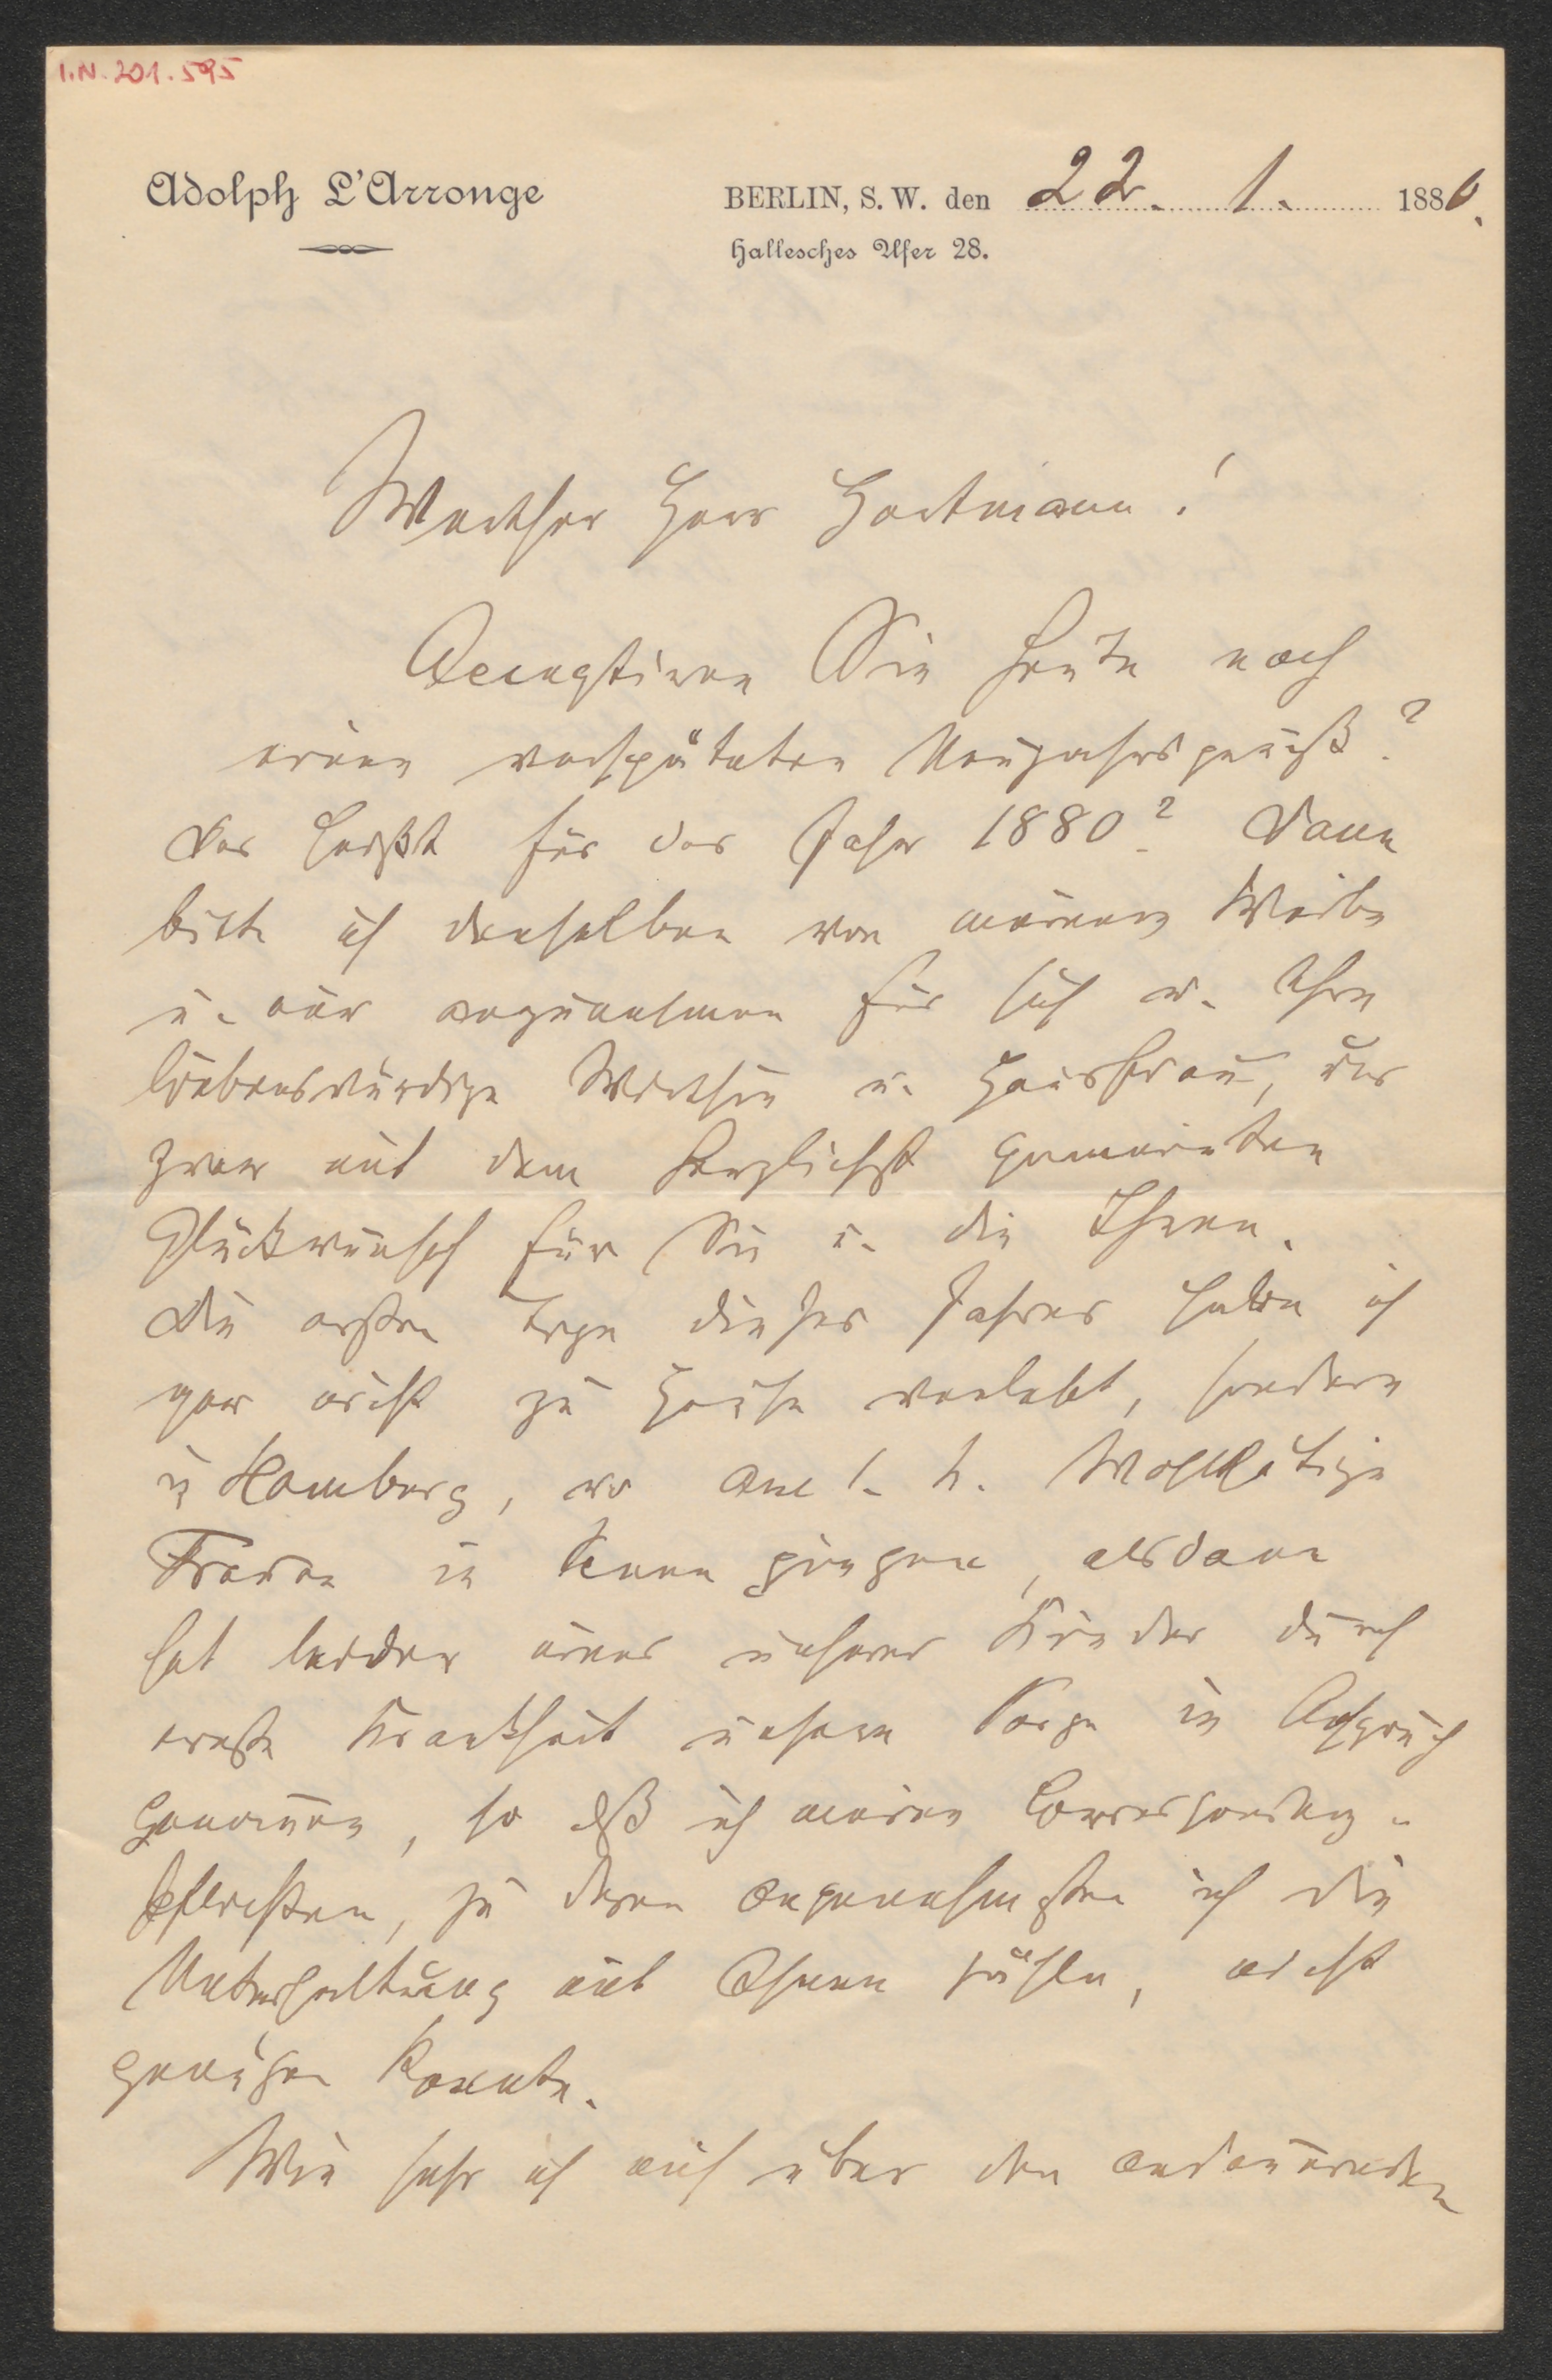 I.N. 201.595
Adolph L'Arronge
BERLIN, S. W. den 22. 1. 1880.
Hallesches Ufer 28.
Werther Herr Hartmann!
Acceptiren Sie heute noch
einen verspäteten Neujahrsgruß?
Das heißt für das Jahr 1880? Dann
bitte ich denselben von meinem Weibe
u. mir anzunehmen für sich u. Ihre
liebenswürdige Wirthin u. Hausfrau,
zwar mit dem herzlichst gemeinten
Glückwunsch für Sie u. die Ihren.
Die ersten Tage dieses Jahres habe ich
gar nicht zu Hause verlebt, sondern
in Hamburg, wo am 1. h. Wohlthätige
Frauen in Scene gingen, alsdann
hat leider eines unserer Kinder durch
ernste Krankheit unsere Sorge in Anspruch
genommen, so daß ich meinen Correspondenz-
pflichten, zu deren angenehmsten ich die
Unterhaltung mit Ihnen zähle, nicht
genügen konnte.
Wie sehr ich mich über den andauernden